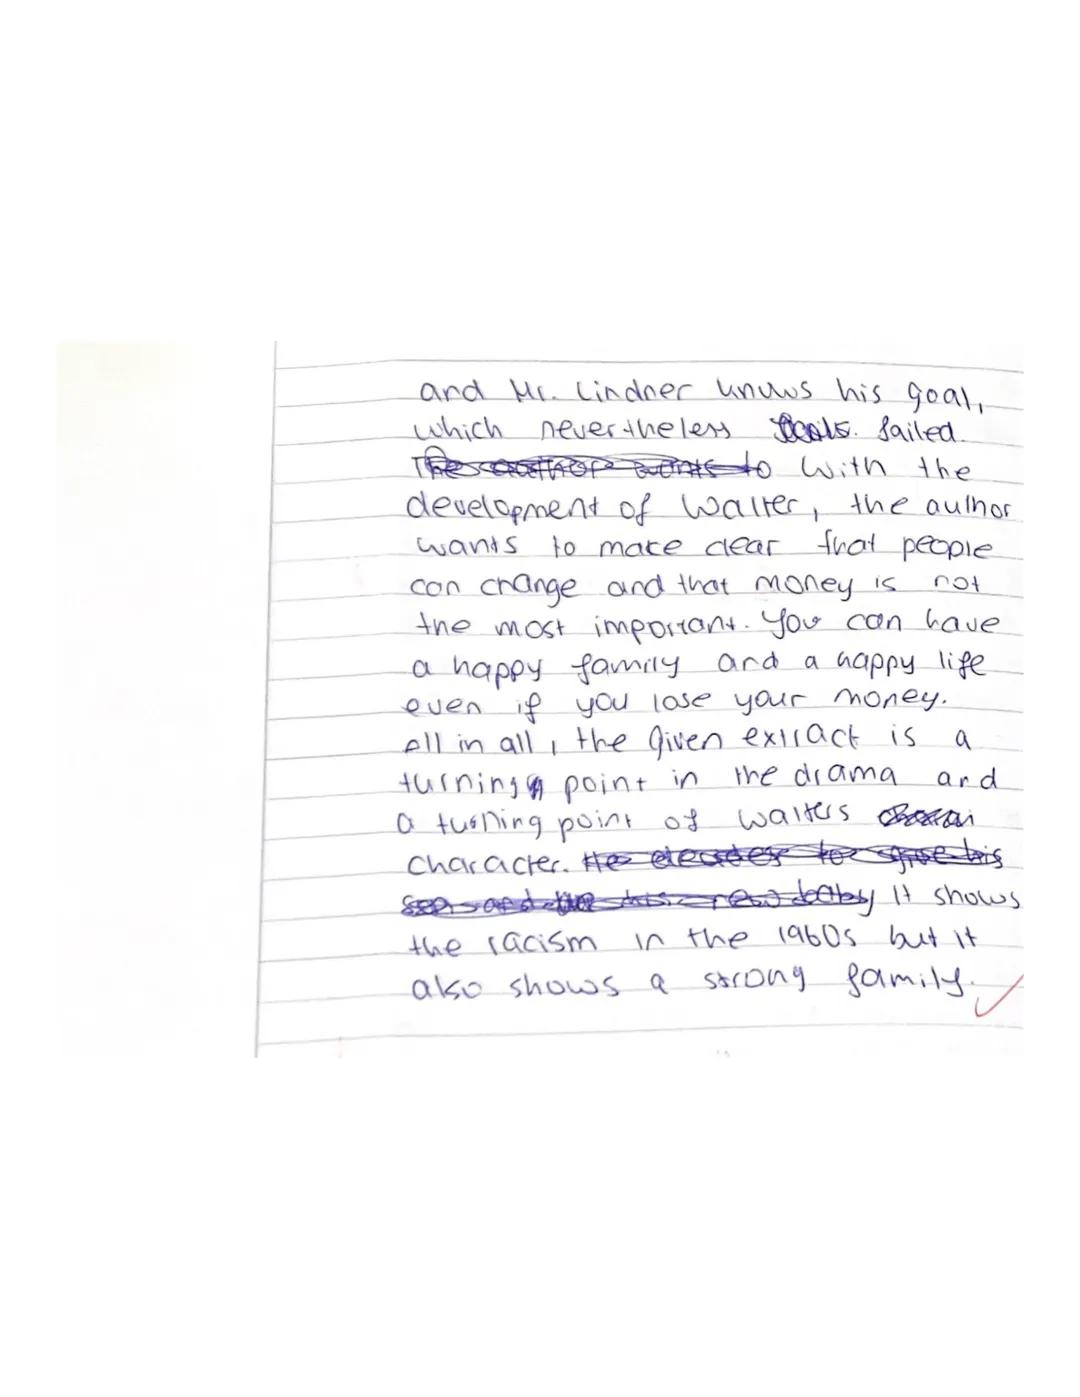 and Mr. Lindner knows his goal,
which nevertheless failed.
The author wants to With the
development of Walter, the author
wants to make clear that people
can change and that money is not
the most important. You can have
a happy family and a happy life
even if you lose your money.
All in all, the given extract is a
turning point in the drama and
a turning point of Walters
character. He decides to give his
son and the his new baby It shows
the racism in the 1960s but it
also shows a strong family.